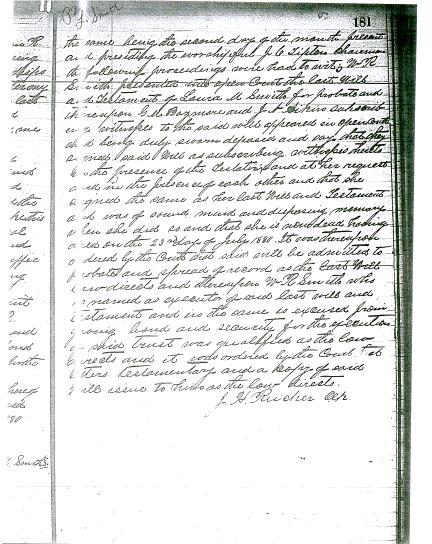 181
the same being the second day of the month present
and presiding the worshipful J. C. Tipton Chairman
the following proceedings were had to wit; W. R.
Smith presented in open Court the last Will
and Testament of Laura M Smith for probate and
thereupon and J. subscrib
ing witnesses to the said will appeared in open court
and being duly sworn deposed and say that they
said Will as subscribing witnesses thereto
in the presence of the Testatrix and at her request
and in the presence of each other and that she
signed the same as her last Will and Testament
and was of sound mind and disposing memory
when she did so and that she is now dead having
died on the 23rd day of July 1880. It was thereupon
ordered by the Court that said will be admitted to
probate and spread of record as the last Will
directs and thereupon W. R. Smith who
is named as executor of said last will and
testament and in the same is excused from
giving bond and security for the execution
of said trust was qualified as the law
directs and it was ordered by the Court that
letters testamentary and a copy of said
will issue to him as the law directs.
J. H. Rucker Clk.
Smiths